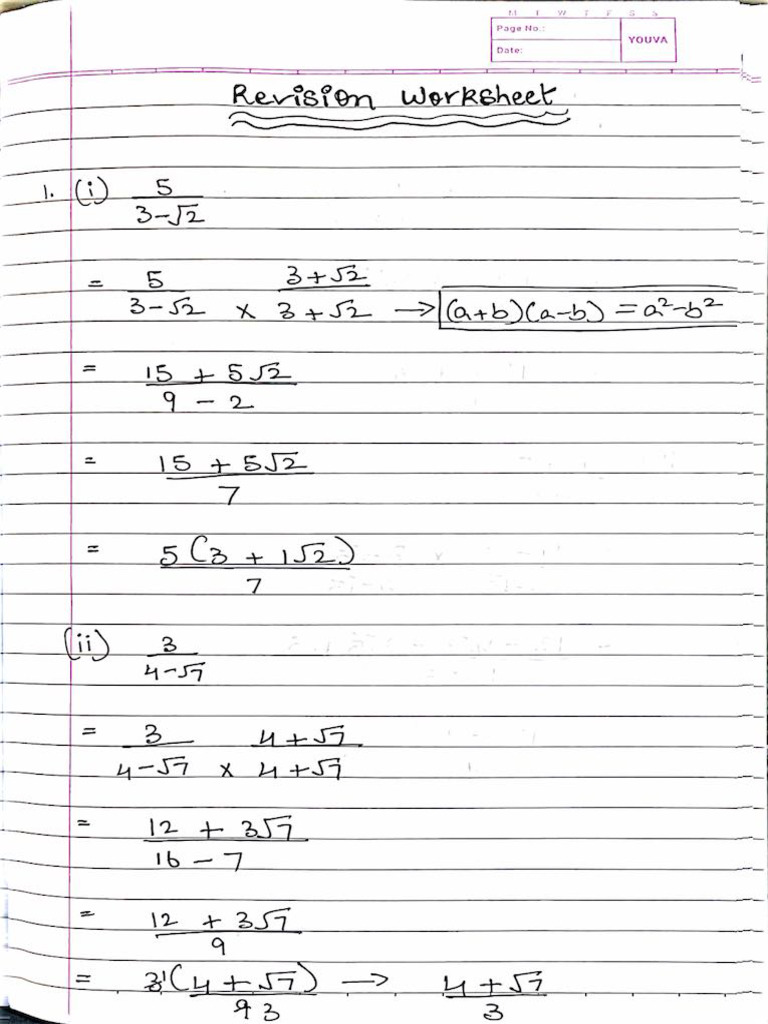 M T W T F S S
Page No.:
YOUVA
Date:
Revision Worksheet
1. (i) 5
3-√2
= 5 3+√2
3-√2 × 3+√2 → (a+b)(a-b) = a²-b²
= 15 + 5√2
9 - 2
= 15 + 5√2
7
= 5(3 + 1√2)
7
(ii) 3
4-√7
= 3 4+√7
4-√7 × 4+√7
= 12 + 3√7
16 - 7
= 12 + 3√7
9
= 3¹(4+√7) → 4+√7
9 3 3